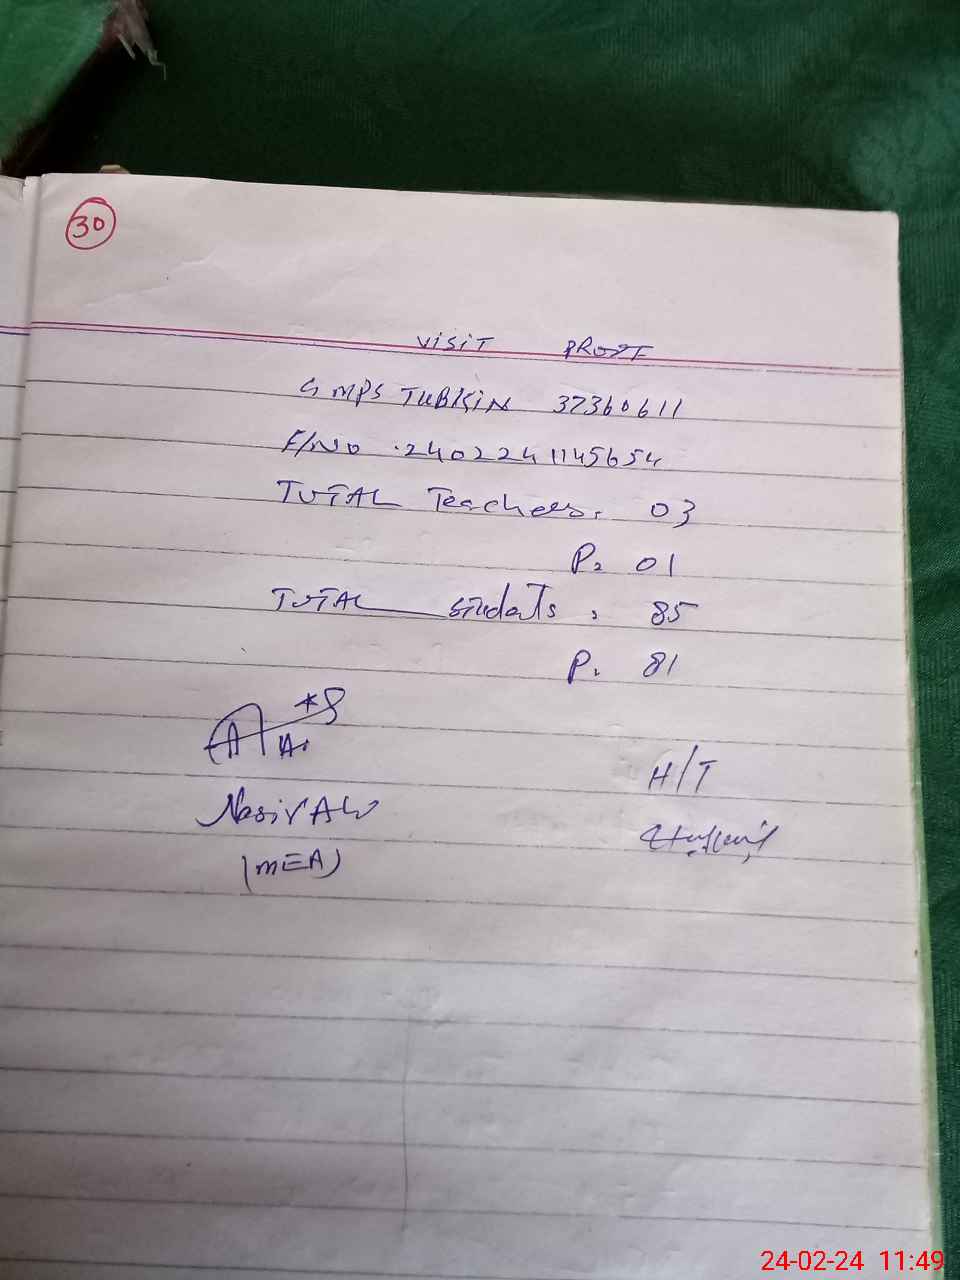 30
VISIT PROOF
GMPS TUBKIN 37360611
F/NO .240224114S654
TOTAL Teachers. 03
P. 01
TOTAL Students, 85
P. 81
H/T
Nasir Ali
(MEA)
24-02-24 11:49